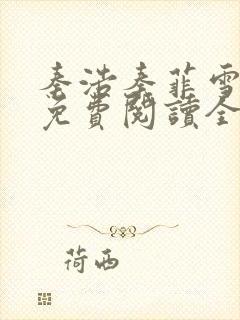 秦浩秦菲雪
免費閱讀全
荷西